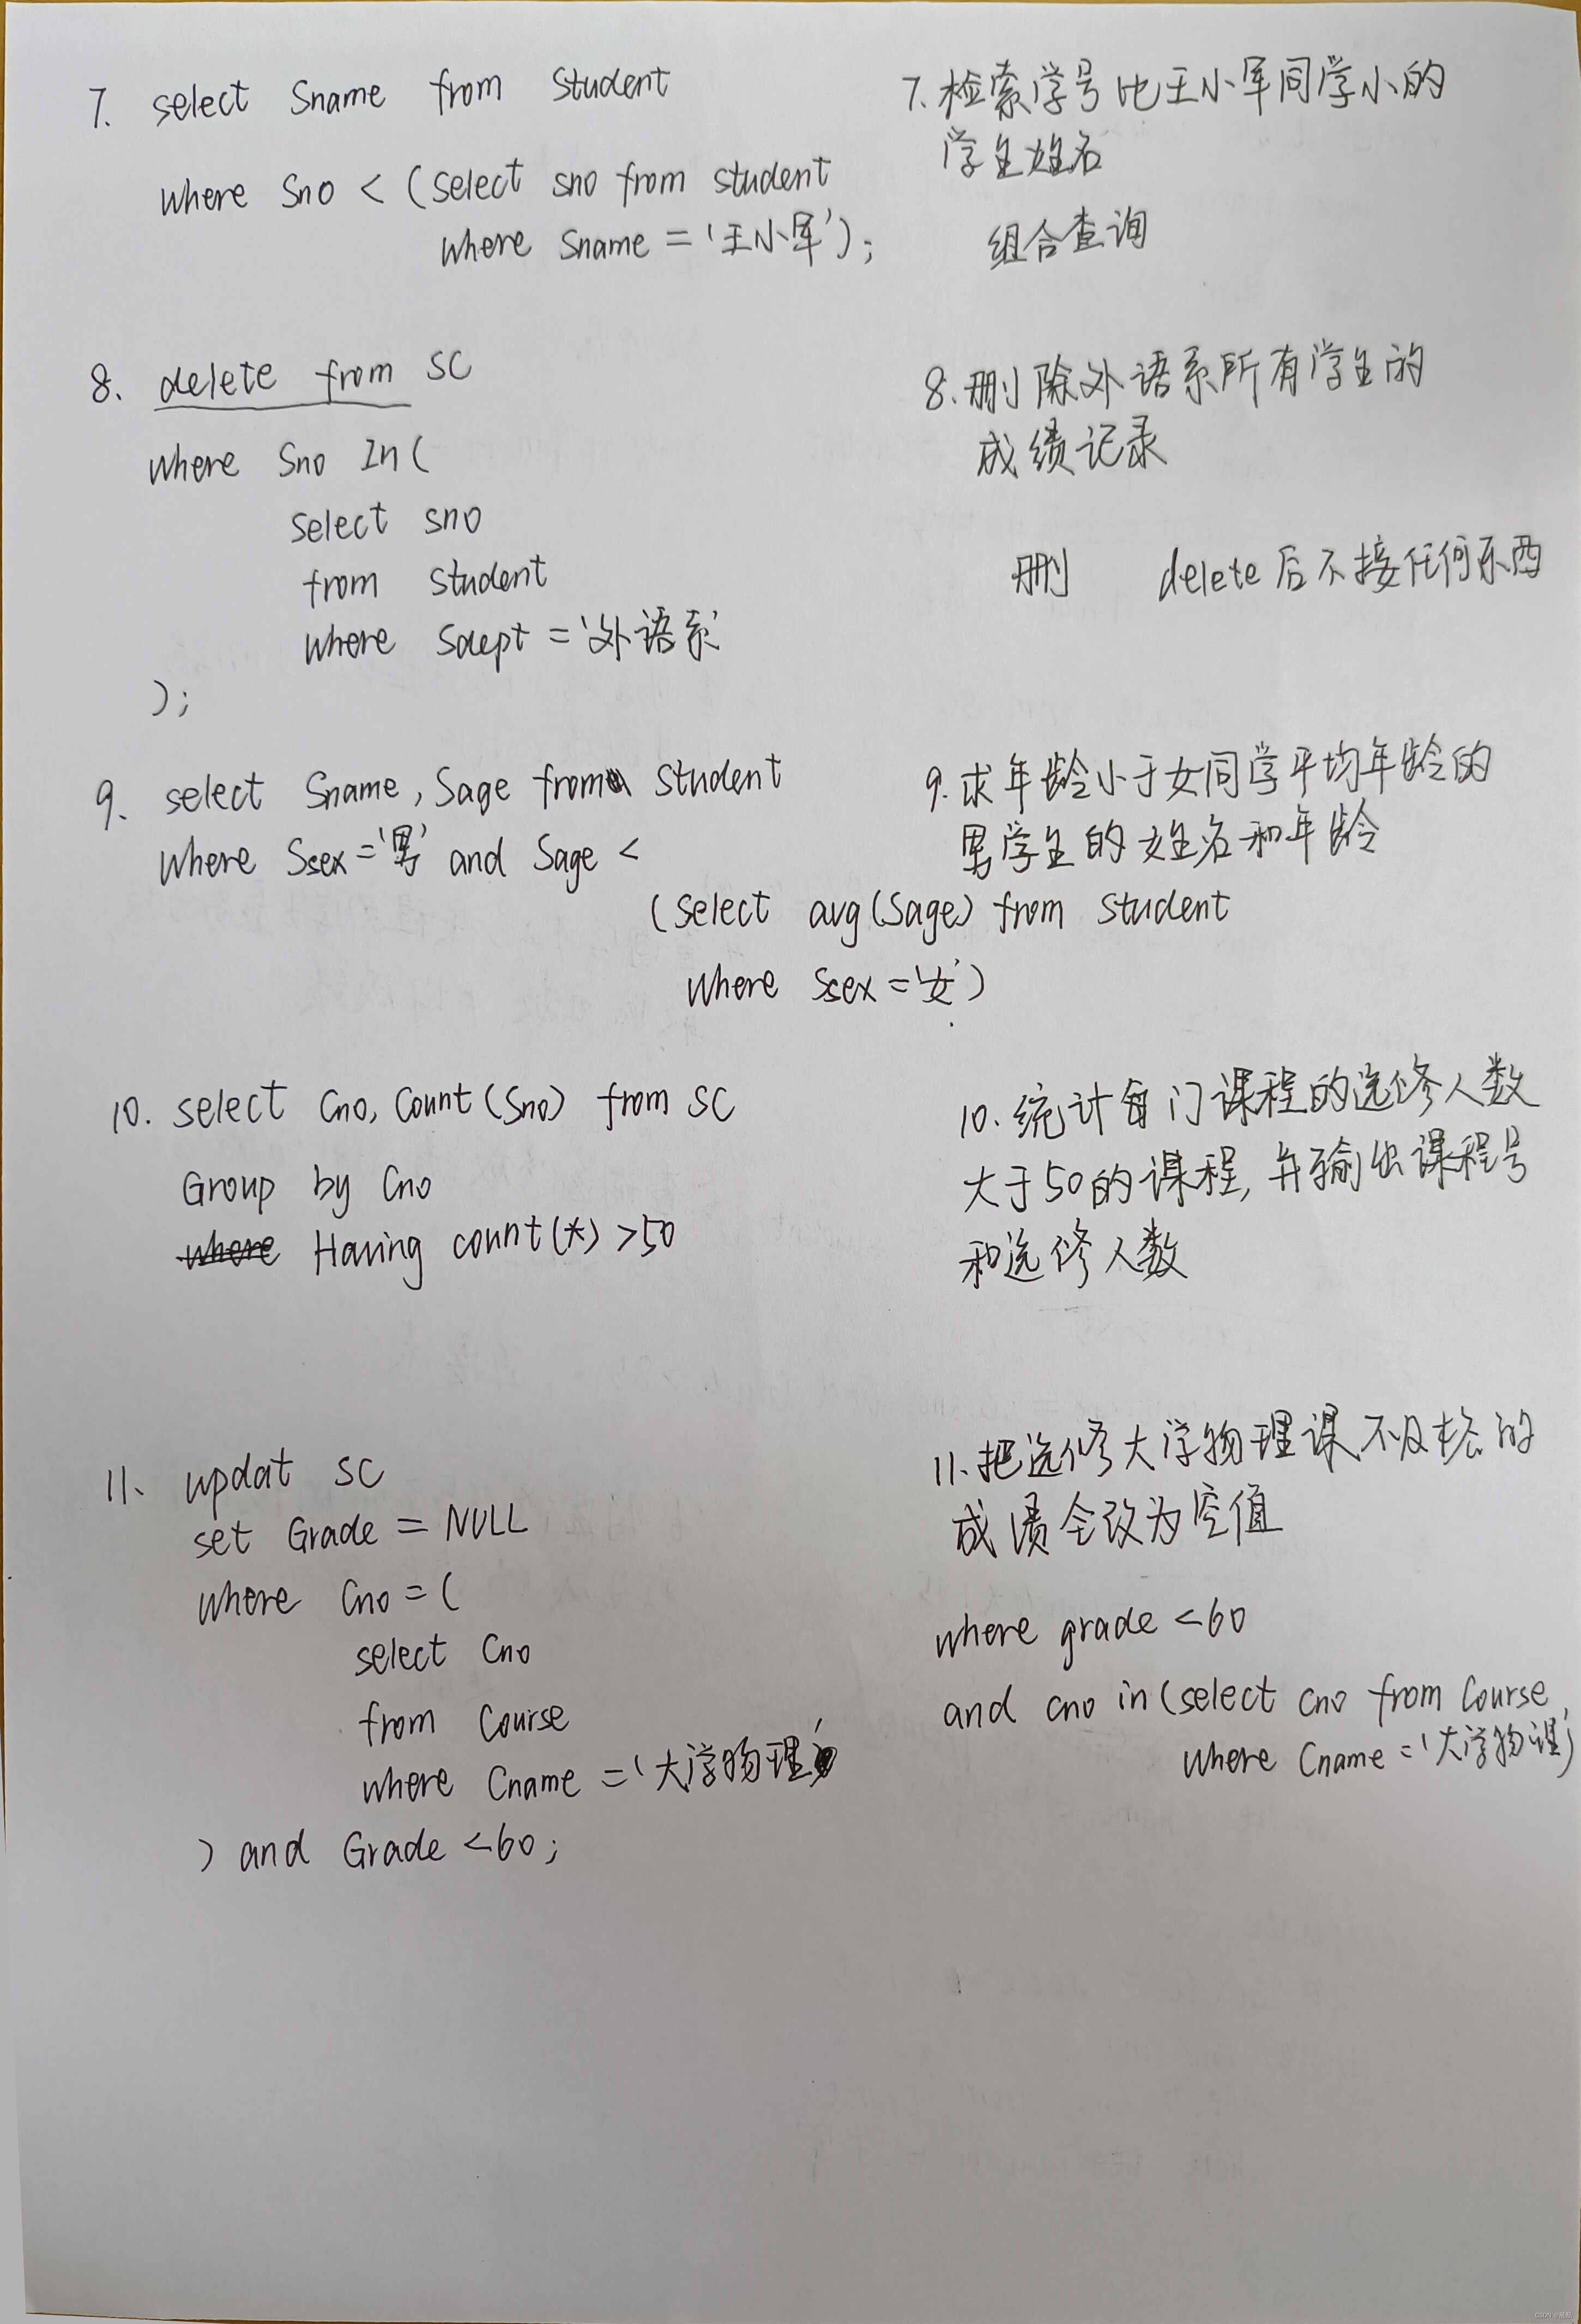 7. select Sname from Student
where Sno < (select sno from student
where Sname = '王小军');
7. 检索学号比王小军同学小的
学生姓名
组合查询
8. delete from SC
where Sno In(
select sno
from student
where Sdept = '外语系'
);
8. 删除外语系所有学生的
成绩记录
删 delete后不接任何东西
9. select Sname, Sage from Student
where Ssex = '男' and Sage <
(select avg(Sage) from student
where Ssex = '女')
9. 求年龄小于女同学平均年龄的
男学生的姓名和年龄
10. select Cno, Count(Sno) from SC
Group by Cno
where Having count(*) >50
10. 统计每门课程的选修人数
大于50的课程, 并输出课程号
和选修人数
11. updat SC
set Grade = NULL
where Cno = (
select Cno
from Course
where Cname = '大学物理'
) and Grade <60;
11. 把选修大学物理课不及格的
成绩全改为空值
where grade <60
and cno in (select cno from Course
where Cname = '大学物理')